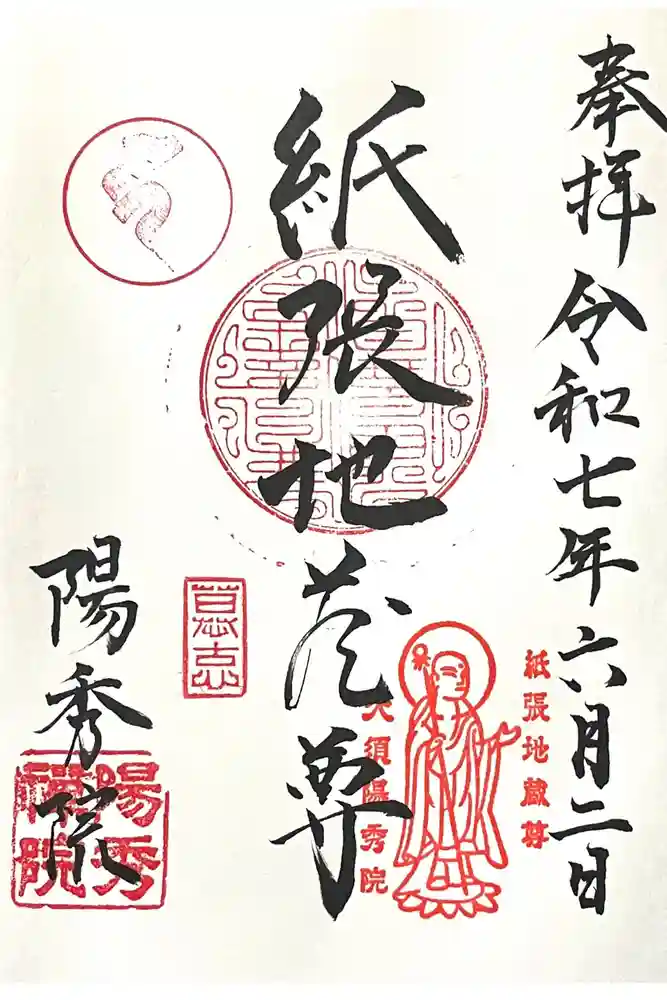 奉拝 令和七年六月二日
紙張地蔵尊
紙張地蔵尊
大須陽秀院
陽秀院
陽秀
禅院